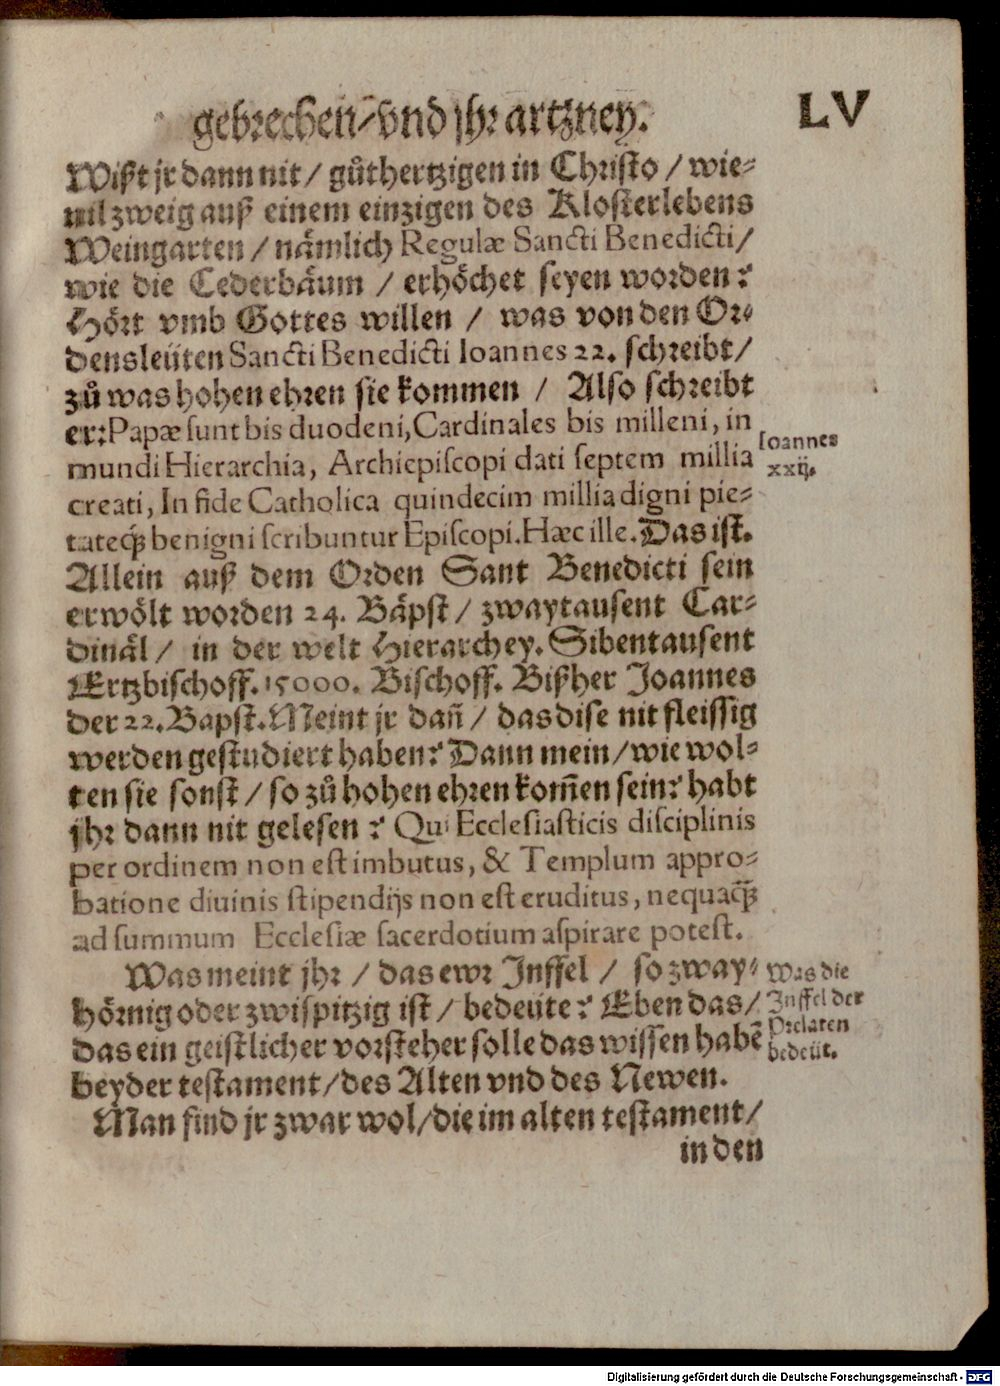 gebrechen/vnd jhr artzney. LV
Wißt jr dann nit/ gůthertzigen in Christo/ wie-
uil zweig auß einem einzigen des Klosterlebens
Weingarten/ nämlich Regulæ Sancti Benedicti/
wie die Cederbäum/ erhöchet seyen worden?
Hört vmb Gottes willen/ was von den Or-
densleüten Sancti Benedicti Ioannes 22. schreibt/
zů was hohen ehren sie kommen/ Also schreibt
er: Papæ sunt bis duodeni, Cardinales bis milleni, in
mundi Hierarchia, Archiepiscopi dati septem millia
Ioannes
xxij.
creati, In fide Catholica quindecim millia digni pie-
tateq́; benigni scribuntur Episcopi. Hæc ille. Das ist.
Allein auß dem Orden Sant Benedicti sein
erwölt worden 24. Bäpst/ zwaytausent Car-
dinäl/ in der welt Hierarchey. Sibentausent
Ertzbischoff. 15000. Bischoff. Bißher Joannes
der 22. Bapst. Meint jr dañ/ das dise nit fleissig
werden gestudiert haben? Dann mein/ wie wol-
ten sie sonst/ so zů hohen ehren kom̃en sein? habt
jhr dann nit gelesen? Qui Ecclesiasticis disciplinis
per ordinem non est imbutus, & Templum appro-
batione diuinis stipendijs non est eruditus, nequaq̃;
ad summum Ecclesiæ sacerdotium aspirare potest.
Was meint jhr/ das ewr Jnffel/ so zway-
hörnig oder zwispitzig ist/ bedeüte? Eben das/
das ein geistlicher vorsteher solle das wissen habẽ
Was die
Jnffel der
Prelaten
bedeüt.
beyder testament/ des Alten vnd des Newen.
Man find jr zwar wol/ die im alten testament/
in den
Digitalisierung gefördert durch die Deutsche Forschungsgemeinschaft - DFG